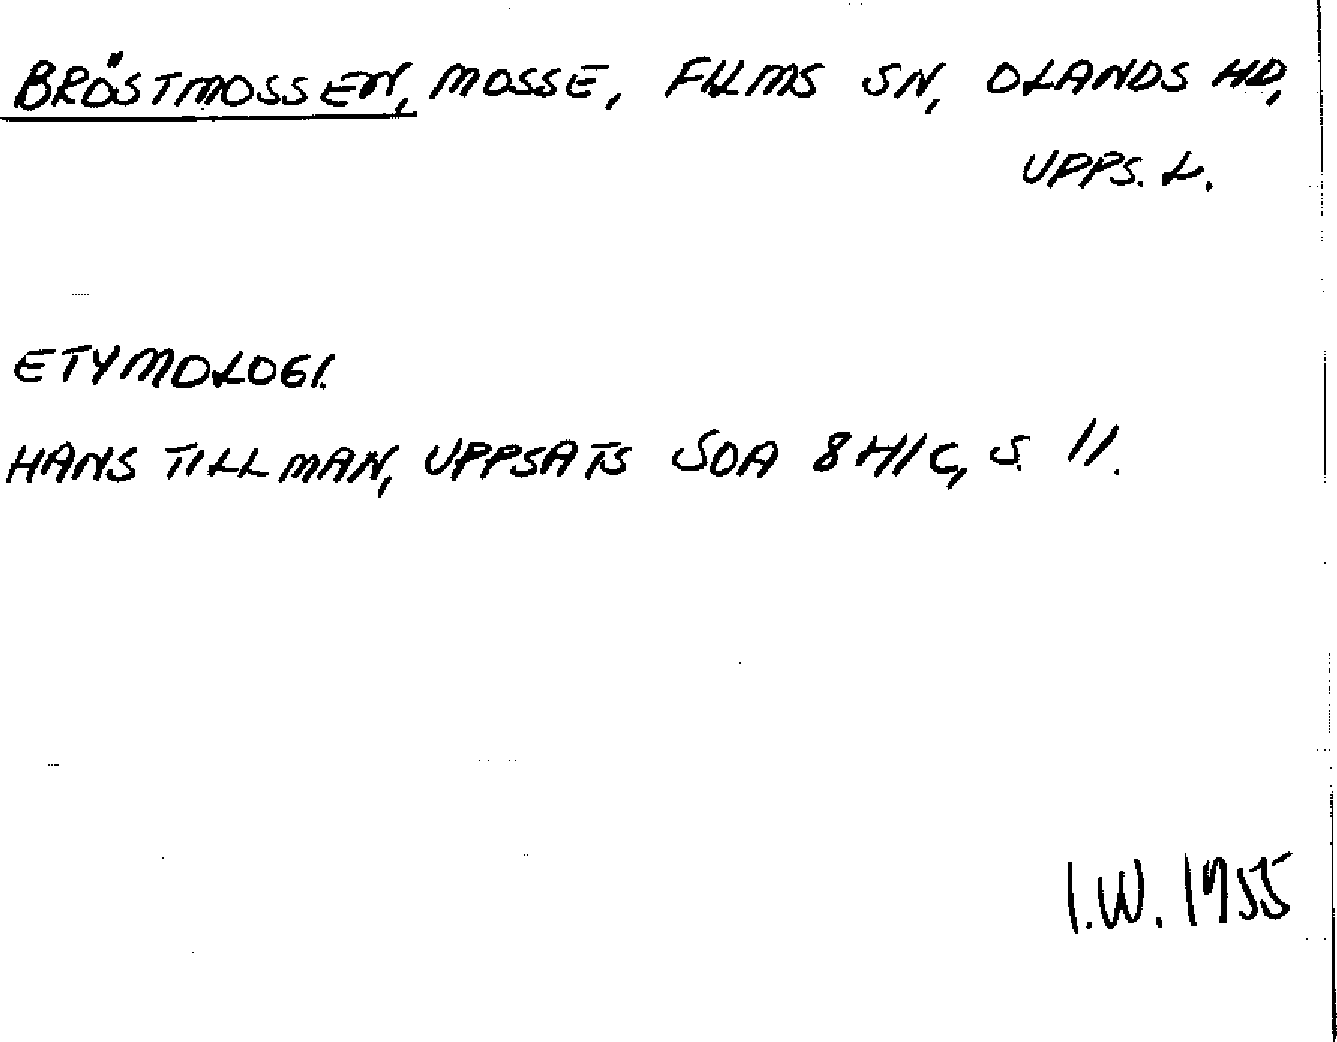 BRÖSTMOSSEN, MOSSE, FILMS SN, OLANDS HD,
UPPS. L.
ETYMOLOGI.
HANS TILLMAN, UPPSATS SOA 8H1C, S. 11.
I.W. 1955